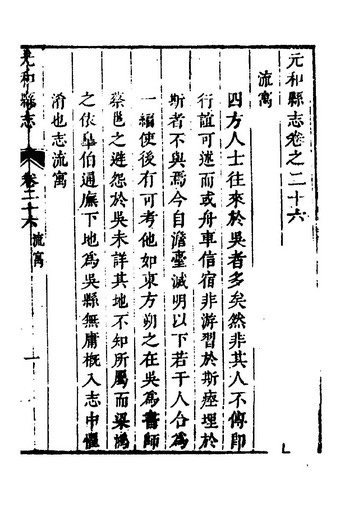 元和縣志卷之二十六
流寓
四方人士往來於吳者多矣然非其人不傳即
行誼可述而或舟車信宿非游習於斯瘞埋於
斯者不與焉今自澹臺滅明以下若干人合為
一編使後有可考他如東方朔之在吳為書師
蔡邕之避怨於吳未詳其地不知所屬而梁鴻
之依皐伯通廡下地為吳縣無庸槪入志中懼
淆也志流寓
元和縣志
卷二十六
流寓
一